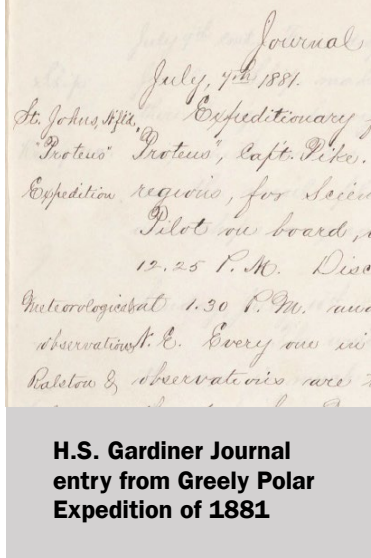 Journal
July, 7th 1881.
St. Johns, Nfld. Expeditionary
"Proteus" Proteus", Capt. Pike.
Expedition regions, for Scien
Pilot on board,
12.25 P.M. Disc
Meteorological at 1.30 P.M. and
observations N.E. Every one in
Ralston & observations are
H.S. Gardiner Journal
entry from Greely Polar
Expedition of 1881